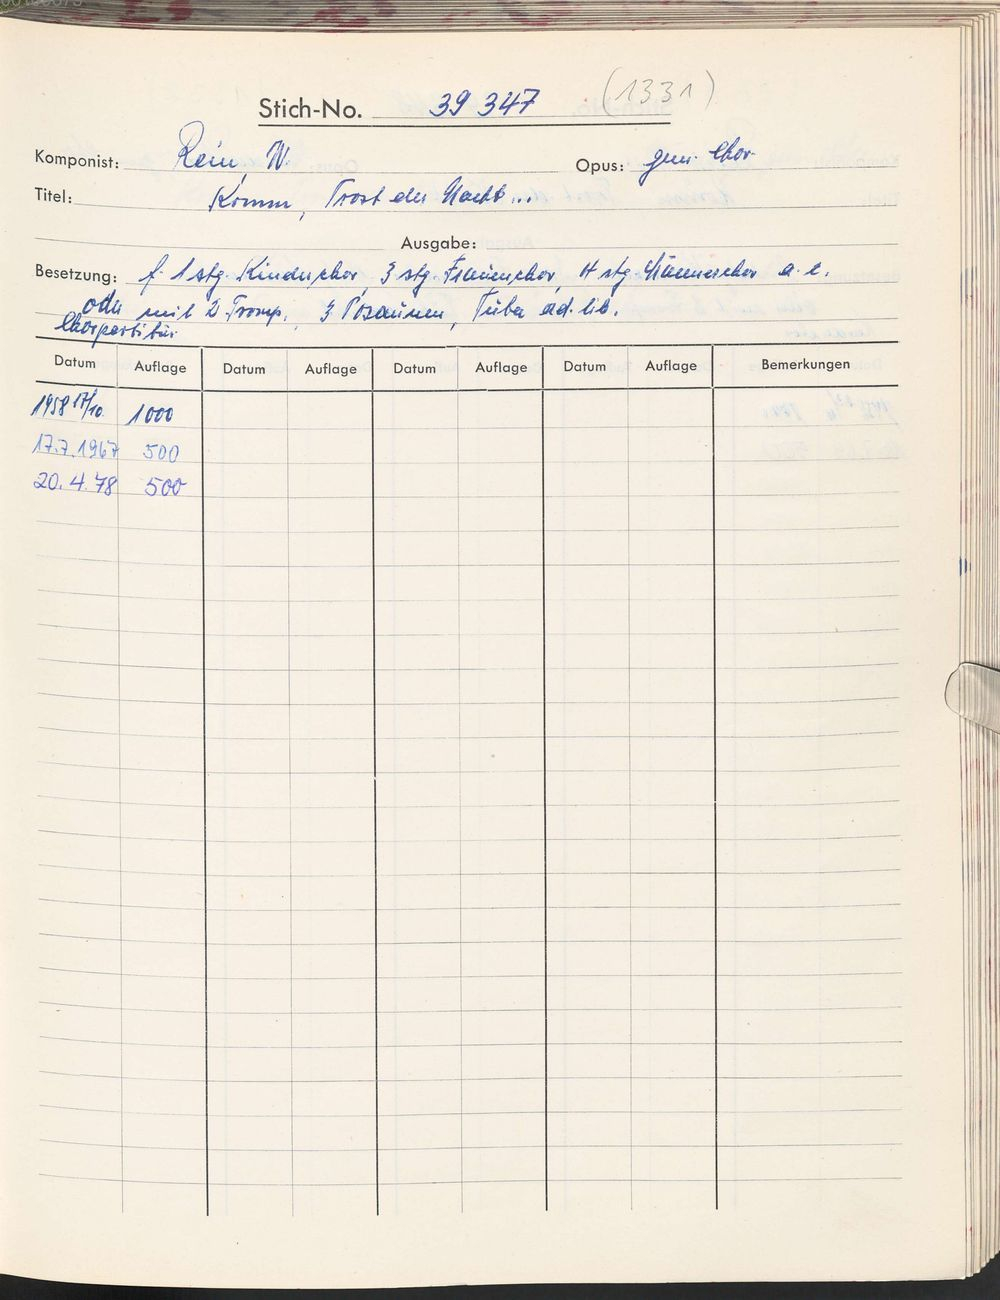 (1331)
Stich-No. 39 347
Komponist: Rein, W. Opus: gem. Chor
Titel: Komm, Trost der Nacht...
Ausgabe:
Besetzung: f. 1 stg. Kinderchor, 3 stg. Frauenchor, 4 stg. Männerchor a. c.
oder mit 2 Tromp., 3 Posaunen, Tuba ad. lib.
Chorpartitur
Datum Auflage Datum Auflage Datum Auflage Datum Auflage Bemerkungen
1958 17/10 1000
17.7.1967 500
20.4.78 500